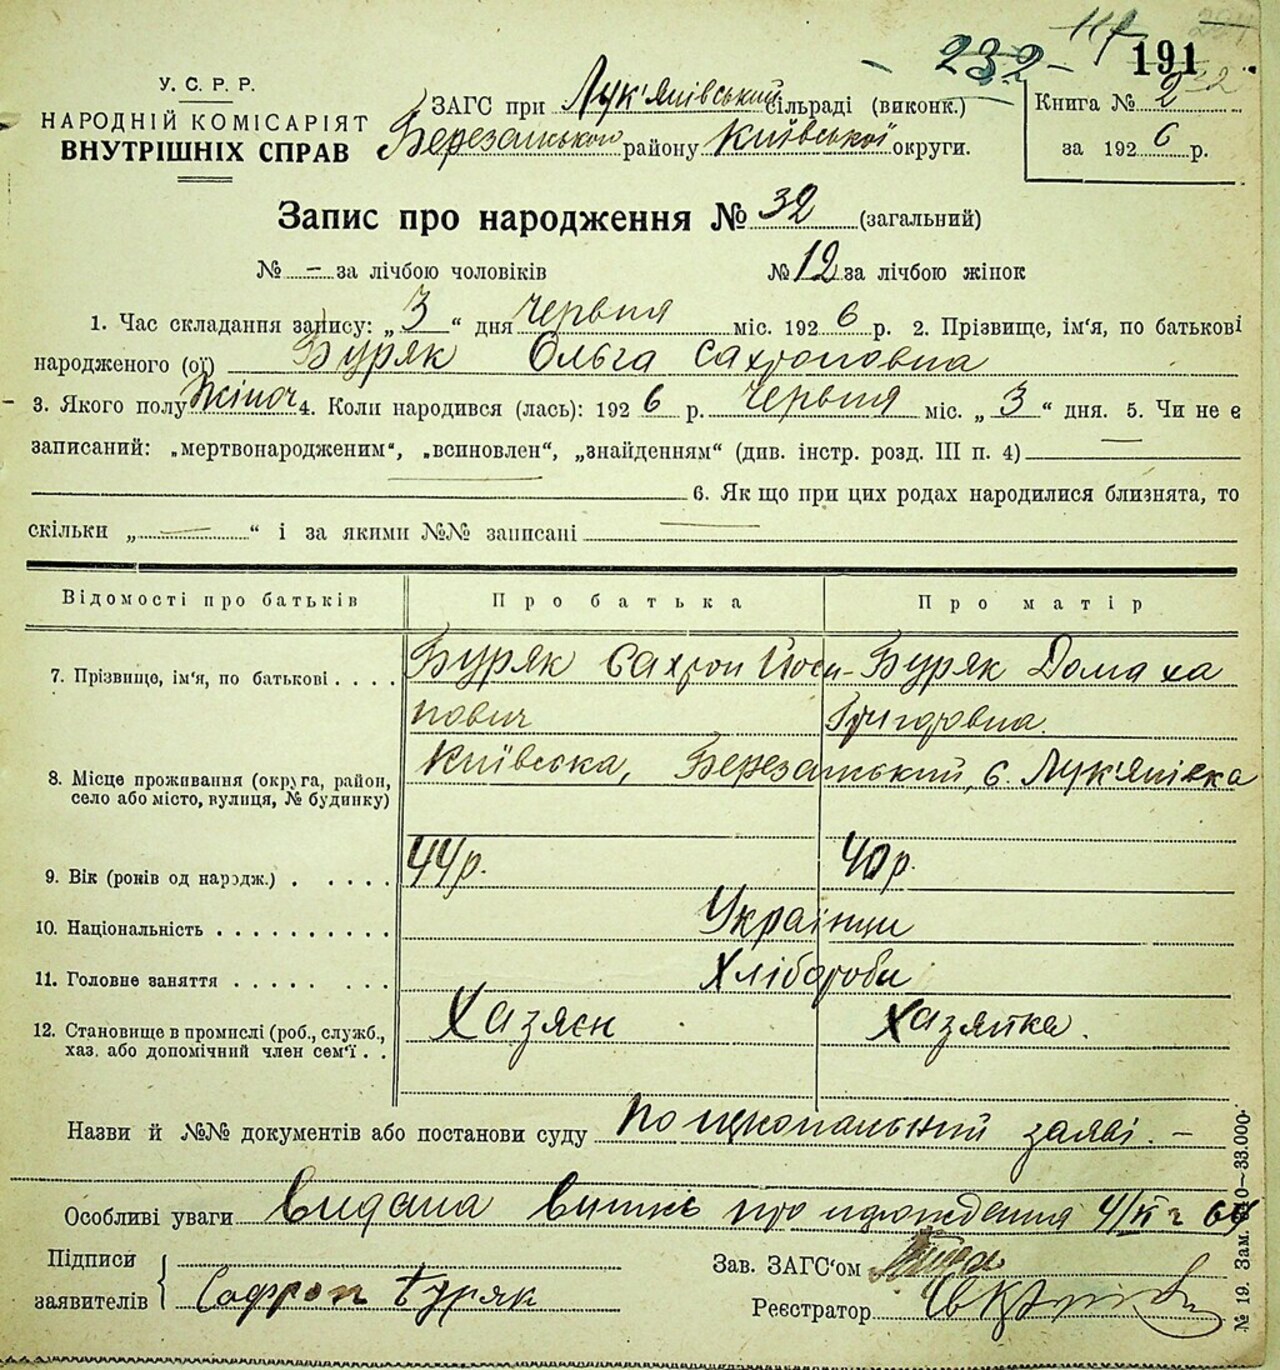 117
- 232 - 191
У. С. Р. Р.
НАРОДНІЙ КОМІСАРІЯТ
ВНУТРІШНІХ СПРАВ
ЗАГС при Лук'янівський сільраді (виконк.)
Березанського району Київської округи.
Книга № 2
за 1926 р.
Запис про народження № 32 (загальний)
№ - за лічбою чоловіків № 12 за лічбою жінок
1. Час складання запису: „3“ дня червня міс. 1926 р. 2. Прізвище, ім'я, по батькові
народженого (ої) Буряк Ольга Сахроновна
3. Якого полу жіноч 4. Коли народився (лась): 1926 р. червня міс. „3“ дня. 5. Чи не є
записаний: „мертвонародженим“, „всиновлен“, „знайденням“ (див. інстр. розд. III п. 4)
6. Як що при цих родах народилися близнята, то
скільки „ — “ і за якими №№ записані —
Відомості про батьків Про батька Про матір
7. Прізвище, ім'я, по батькові . . . . Буряк Сахрон Йоси- Буряк Домаха
пович Григоровна.
8. Місце проживання (округа, район, Київська, Березанський, с. Лук'янівка
село або місто, вулиця, № будинку)
9. Вік (років од народж.) . . . . . 44 р. 40 р.
10. Національність . . . . . . . . . . Українци
11. Головне заняття . . . . . . . . Хлібороби
12. Становище в промислі (роб., служб., Хазяєн Хазяйка.
хаз. або допомічний член сем'ї . .
Назви й №№ документів або постанови суду По заяві. -
Особливі уваги Видана про 4/IX
Підписи
заявителів Софрон Буряк
Зав. ЗАГС'ом
Реєстратор
№ 19. Зам. 33.000.